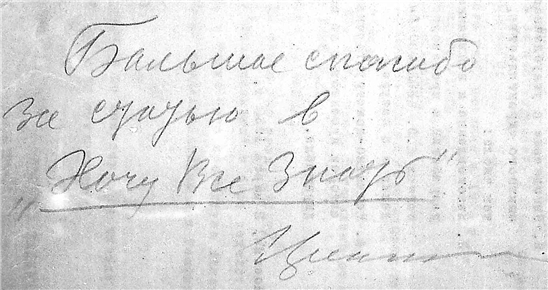 Большое спасибо
за статью в
„Хочу Все Знать"